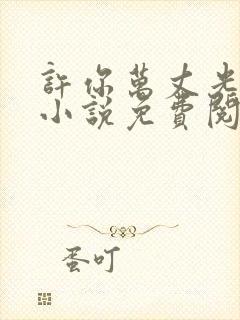 許你萬丈光
小說免費閱
蛋叮